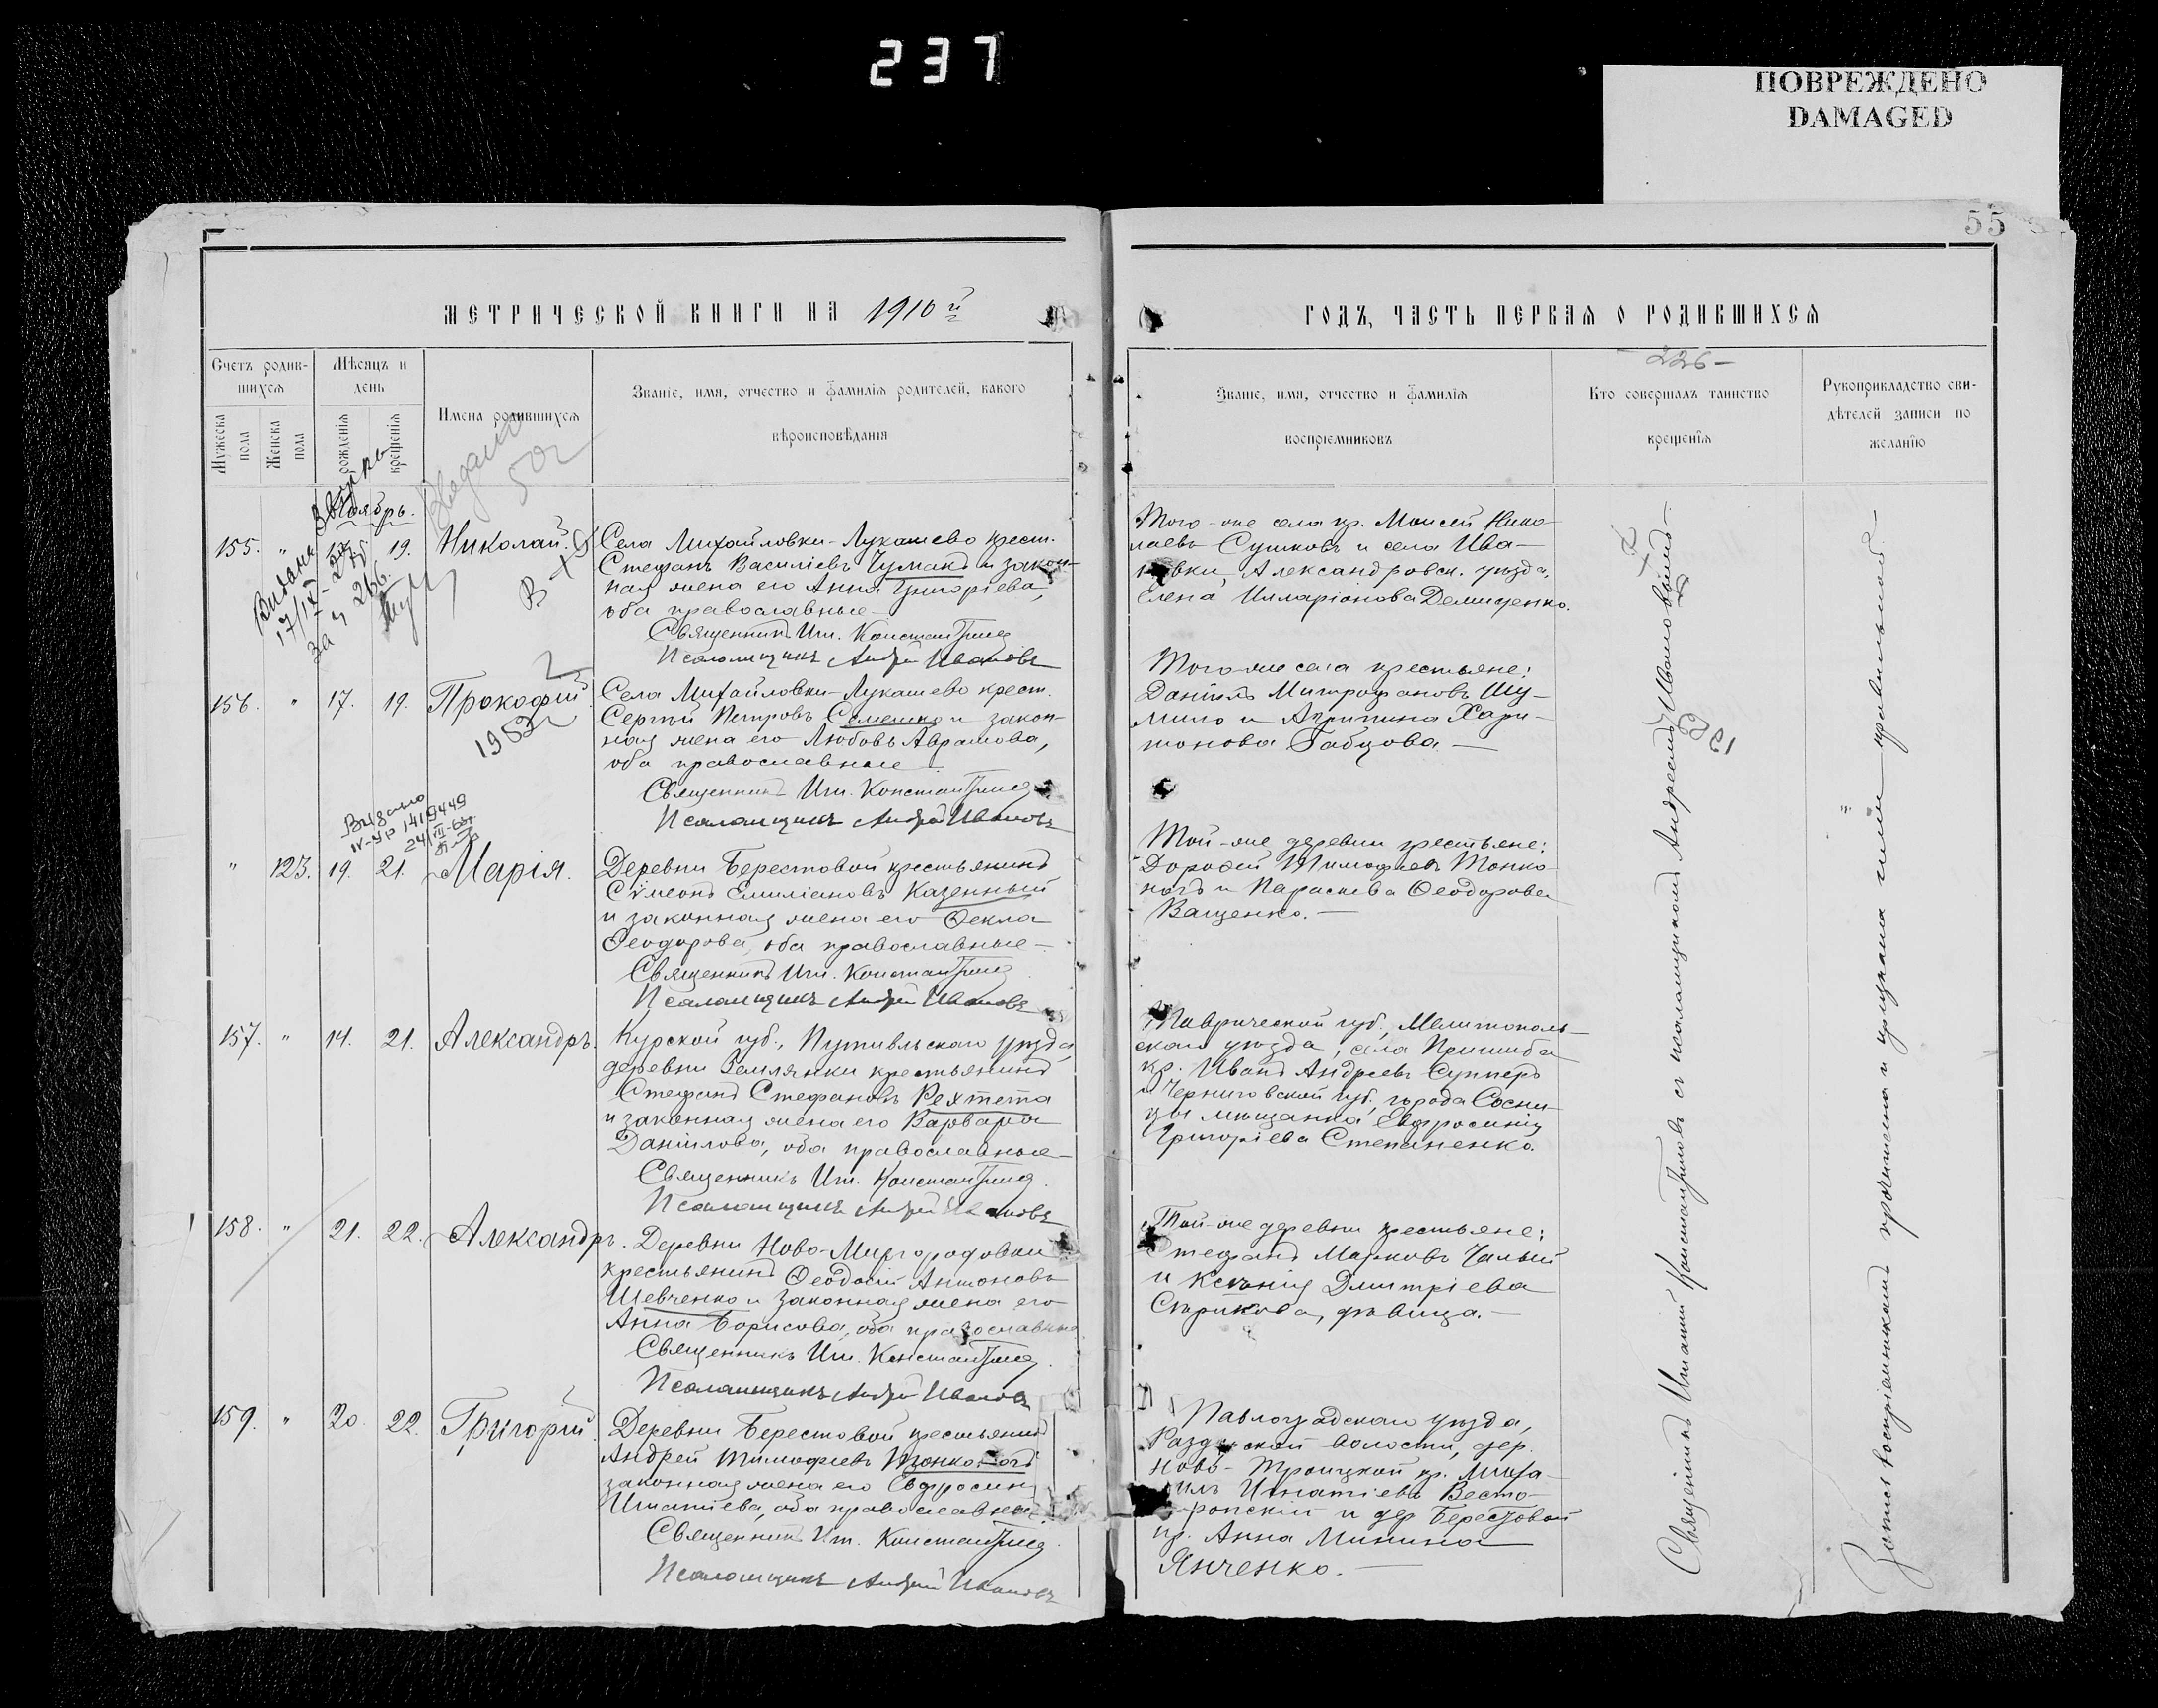 237
ПОВРЕЖДЕНО
DAMAGED
55
МЕТРИЧЕСКОЙ КНИГИ НА 1910 й
ГОДЪ, ЧАСТЬ ПЕРВАЯ О РОДИВШИХСЯ
Счетъ родив-
шихся
Мужеска пола
Женска пола
Мѣсяцъ и день
рожденія
крещенія
Имена родившихся
Званіе, имя, отчество и фамилія родителей, какого
вѣроисповѣданія
Званіе, имя, отчество и фамилія
воспріемниковъ
226 –
Кто совершалъ таинство
крещенія
Рукоприкладство сви-
дѣтелей записи по
желанію
Ноябрь.
155. " 19. Николай.
Села Михайловки-Лукашево крест.
Стефанъ Василіевъ Чумакъ и закон-
ная жена его Анна Григоріева,
оба православные
Священникъ Игн. Константиновъ
Псаломщикъ Андрей Ивановъ
Того-же села кр. Моисей Нико-
лаевъ Сушковъ и села Ива-
новки, Александровск. уѣзда,
Елена Илларіонова Демиденко.
156. " 17. 19. Прокофій
Села Михайловки-Лукашево крест.
Сергѣй Петровъ Семешко и закон-
ная жена его Любовь Аврамова,
оба православные
Священникъ Игн. Константиновъ
Псаломщикъ Андрей Ивановъ
Того-же села крестьяне:
Даніилъ Митрофановъ Шу-
мило и Агрипина Хари-
тонова Бабцова —
Видано
" 123. 19. 21. Марія.
Деревни Берестовой крестьянинъ
Сѵмеонъ Емиліановъ Казенный
и законная жена его Ѳекла
Ѳеодорова, оба православные —
Священникъ Игн. Константиновъ
Псаломщикъ Андрей Ивановъ
Той-же деревни крестьяне:
Дороѳей Тимофіевъ Тонко-
ногъ и Параскева Ѳеодорова
Ващенко. —
157. " 14. 21. Александръ.
Курской губ., Путивльскаго уѣзда,
деревни Землянки крестьянинъ
Стефанъ Стефановъ Рехтета
и законная жена его Варвара
Даніилова, оба православные —
Священникъ Игн. Константиновъ
Псаломщикъ Андрей Ивановъ
Таврической губ., Мелитополь-
скаго уѣзда, села Пришиба
кр. Иванъ Андреевъ Супперъ
и Черниговской губ., города Сосни-
цы мѣщанка Евфросинія
Григоріева Степаненко.
158. " 21. 22. Александръ.
Деревни Ново-Миргородовки
крестьянинъ Ѳеодосій Антоновъ
Шевченко и законная жена его
Анна Борисова, оба православные
Священникъ Игн. Константиновъ
Псаломщикъ Андрей Ивановъ
Той-же деревни крестьяне:
Стефанъ Марковъ Чалый
и Ксенія Дмитріева
Сѣрикова, дѣвица. —
159. " 20. 22. Григорій.
Деревни Берестовой крестьянинъ
Андрей Тимофіевъ Тонконогъ
законная жена его Евфросинія
Игнатіева, оба православные.
Священникъ Игн. Константиновъ
Псаломщикъ Андрей Ивановъ
Павлоградскаго уѣзда,
Раздорской волости, дер.
Ново-Троицкой кр. Миха-
илъ Игнатіевъ
и дер. Берестовой
кр. Анна Минина
Янченко. —
Священникъ Игнатій Константиновъ съ псаломщикомъ Андреемъ Ивановымъ —